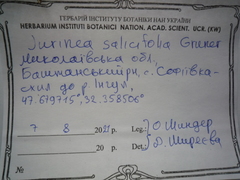 ГЕРБАРІЙ ІНСТИТУТУ БОТАНІКИ НАН УКРАЇНИ
HERBARIUM INSTITUTI BOTANICI NATION. ACAD. SCIENT. UCR. (KW)
Jurinea salicifolia Gruner
Миколаївська обл.,
Баштанський р-н, с. Софіївка
схил до р. Інгул,
47.679715°, 32.358506°
7 8 2021 р. Leg: О. Шиндер
20 р. Det: Д. Ширяєва
№